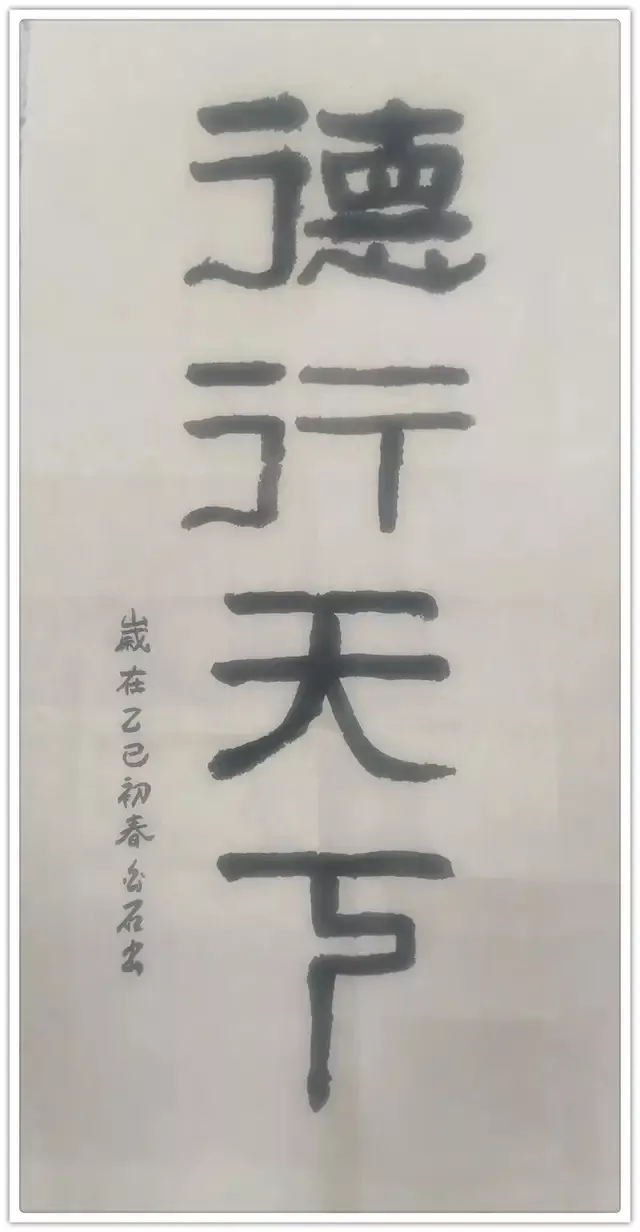 德行天下
歲在乙巳初春白石书